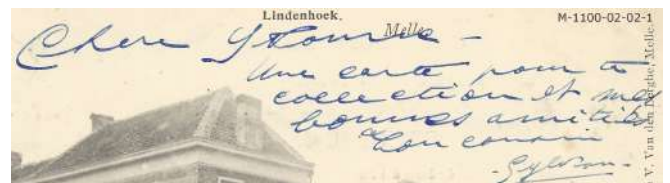 Lindenhoek.
Melle
M-1100-02-02-1
Chere
Une carte pour ta
collection et mes
bonnes amitiés
Ton cousin
V. Van den Berghe, Melle.